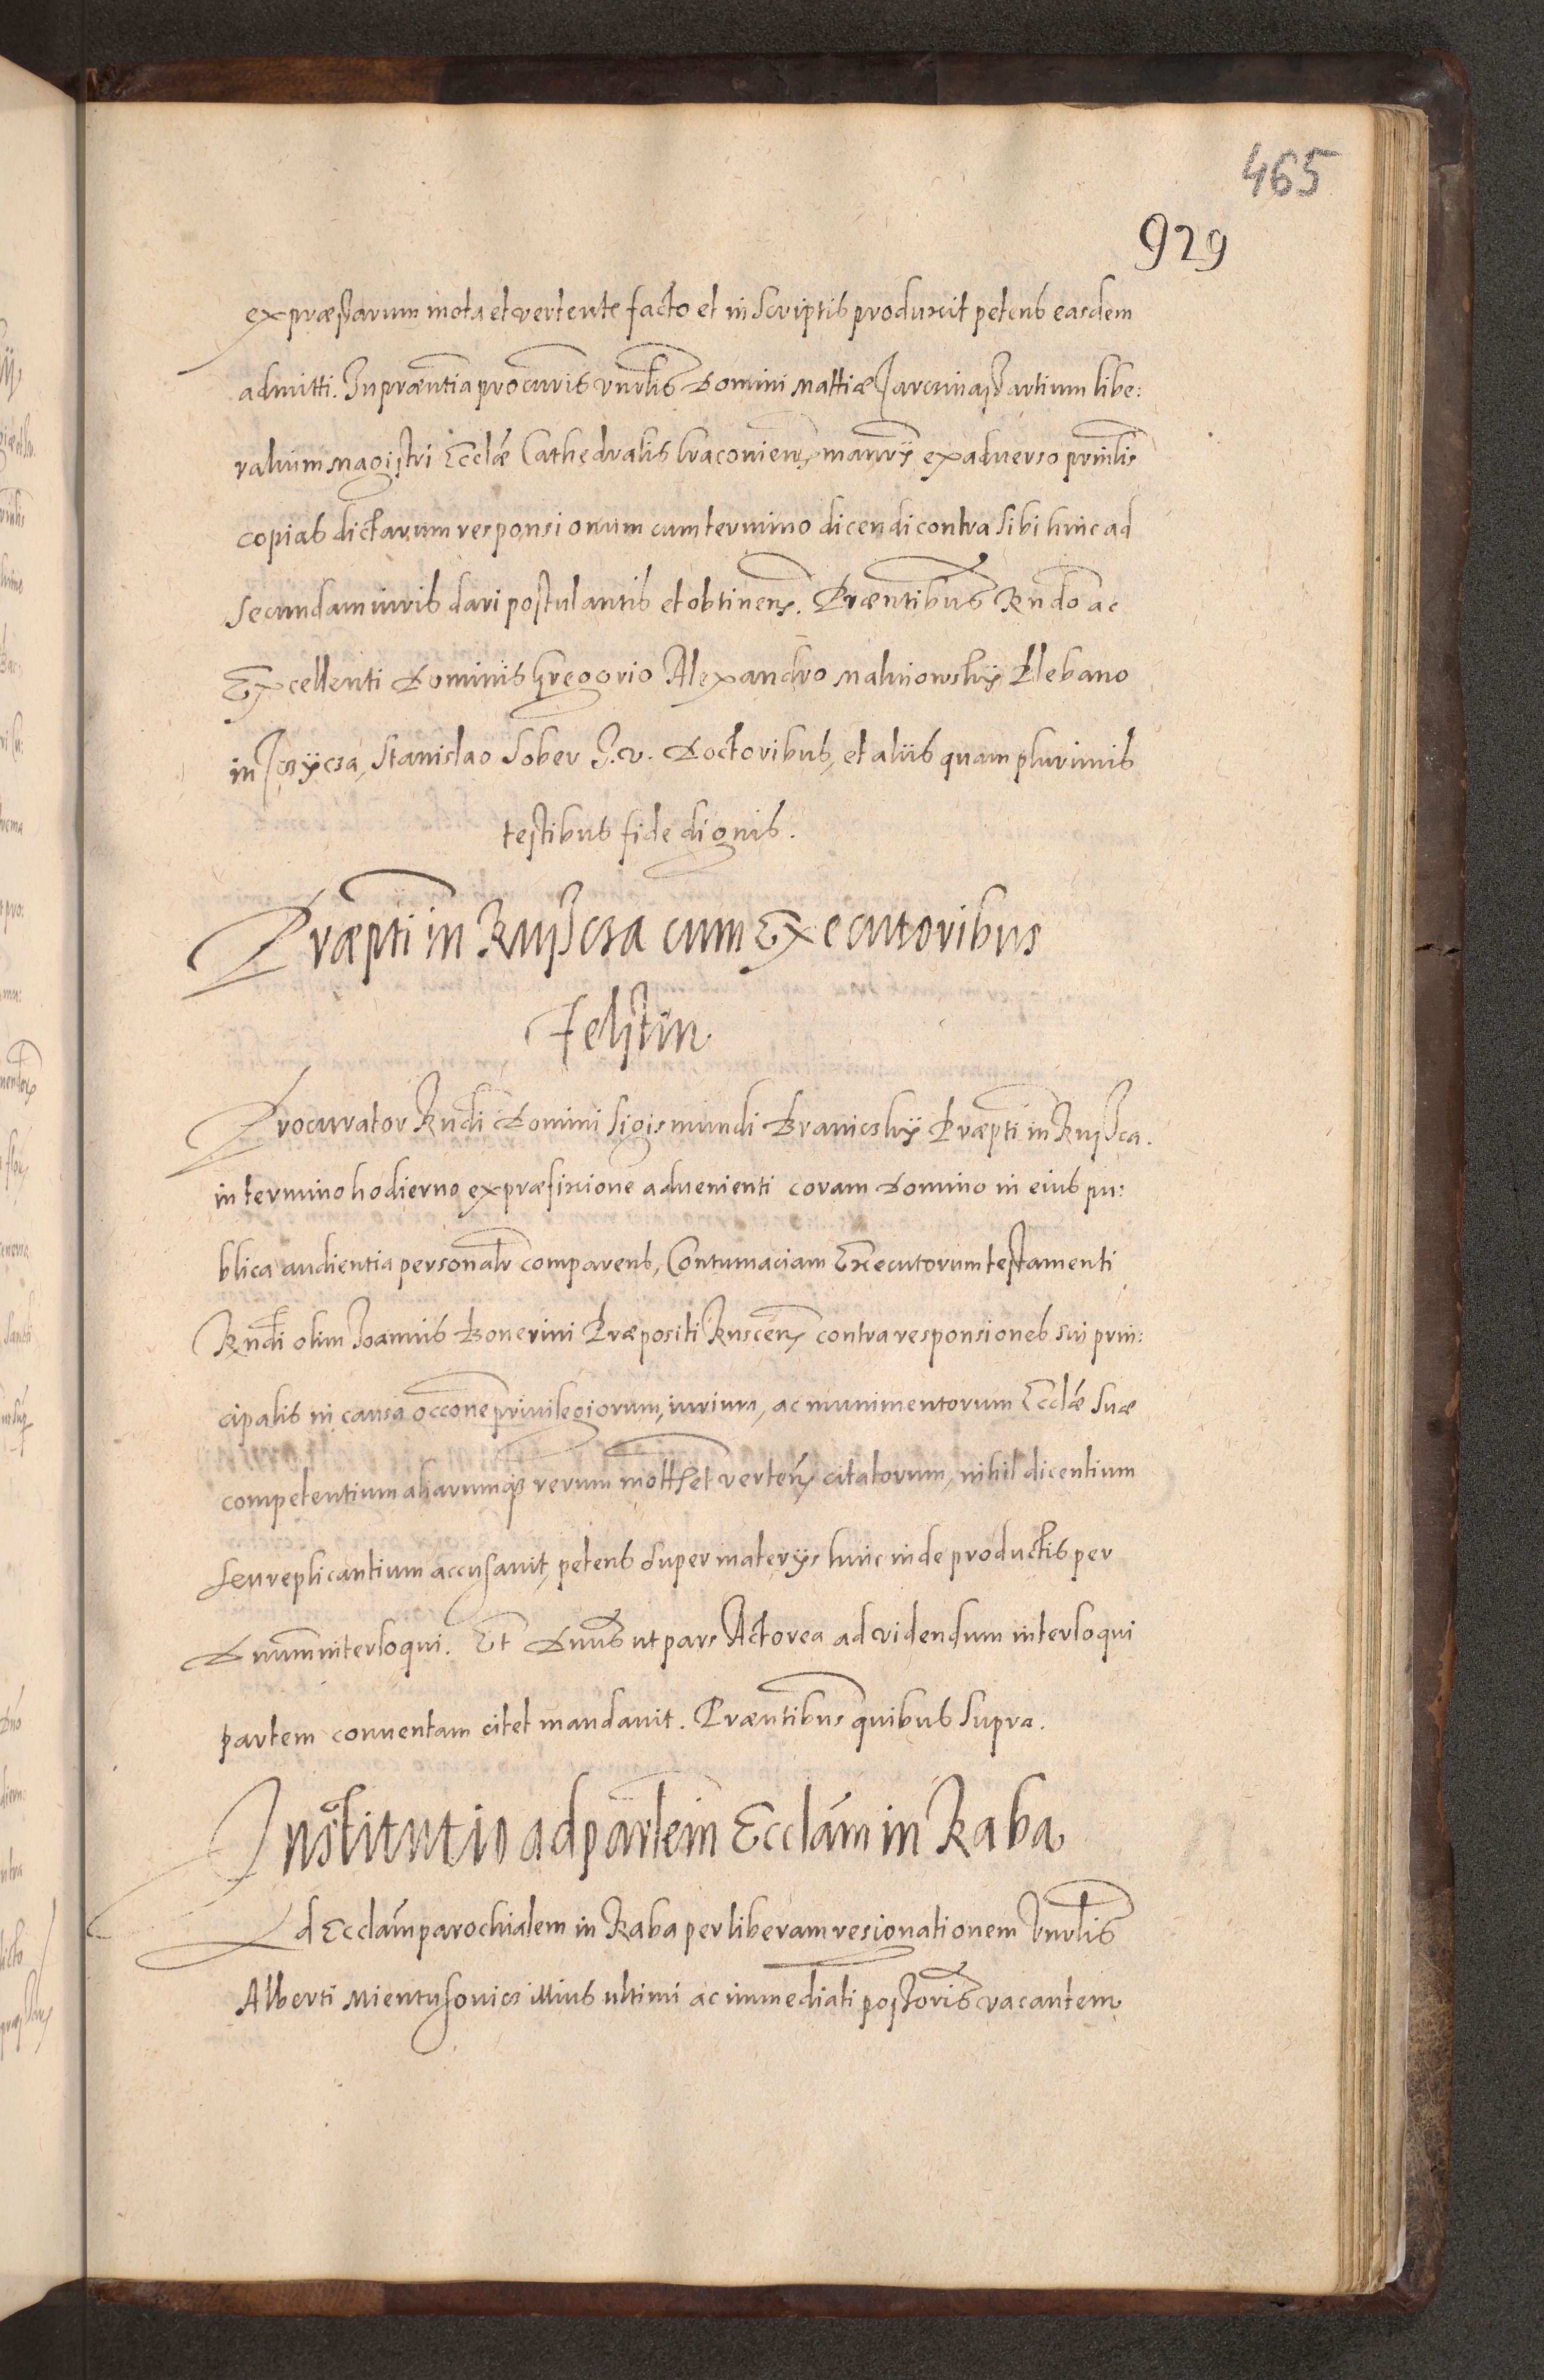 465
929
expræssarum mota et vertente facto et in scriptis produxit petens easdem
admitti. In præntia procuris vnrlis Domini Mattiæ Jarczinassz artium libe:
ralium magistri Ecclæ Cathedralis Craconiens mansrÿ ex aduerso prinlis
copias dictarum responsionum cum termino dicendi contra sibi hinc ad
secundam iuris dari postulantis et obtinens. Præntibus Rndo ac
Excellenti Dominis Gregorio Alexandro Malinowskÿ Plebano
in Jczÿcza, Stanislao Sober J. V. Doctoribus, et aliis quam plurimis
testibus fide dignis.
Præpti in Kuisscza cum Executoribus
Felstin
Procurator Rndi Domini Sigismundi Braniczkÿ Præpti in Kuissca.
in termino hodierno ex præfixione aduenienti coram Domino in eius pu:
blica audientia personalr comparens, Contumaciam Executorum testamenti
Rndi olim Joannis Bonerini Præpositi Kuscens contra responsiones sui prin:
cipalis in causa occone priuilegiorum, iurium, ac munimentorum Ecclæ suæ
competentium aliarumq3 rerum et vertens citatorum, nihil dicentium
seu replicantium accusauit, petens super materÿs hinc inde productis per
Dnum interloqui. Et Dnus ut pars Actorea ad videndum interloqui
partem conuentam citet mandauit. Præntibus quibus supra.
Institutio ad parlem Ecclam in Raba
Ad Ecclam parochialem in Raba per liberam resignationem vnrlis
Alberti Mientusouicz illius ultimi ac immediati possoris vacantem